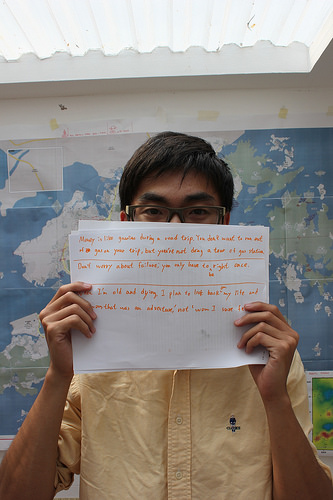 Money is like gasoline during a road trip. You don't want to run out
of gas on your trip, but you're not doing a tour of gas stations.
Don't worry about failure, you only have to be right once.
I'm old and dying, I plan to look back on my life and
that was an adventure, not "wow I sure